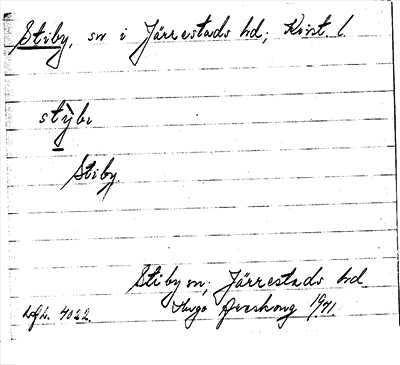 Stiby, sn i Järrestads hd; Krist l.
stỳbı
Stiby.
Stiby sn; Järrestads hd
Hugo Areskoug 1941.
4022.